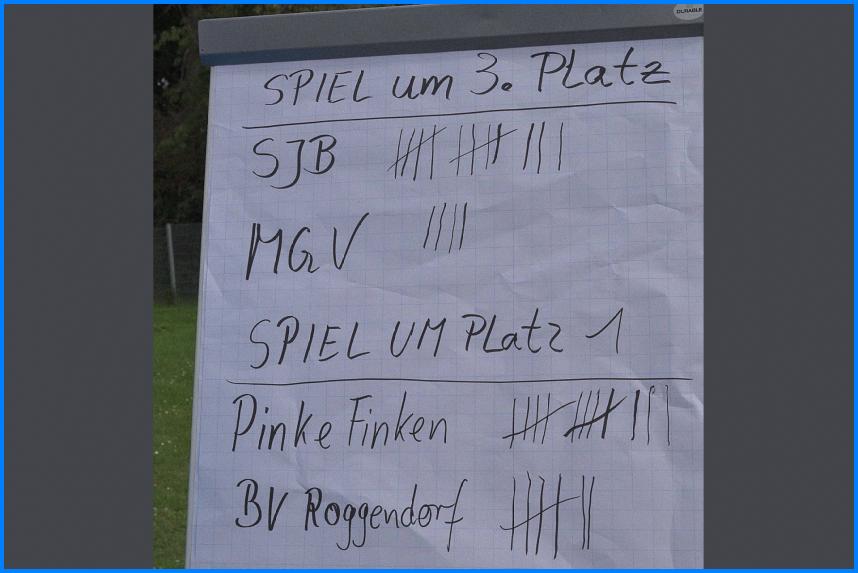 DURABLE
SPIEL um 3. Platz
SJB
MGV
SPIEL UM Platz 1
Pinke Finken
BV Roggendorf